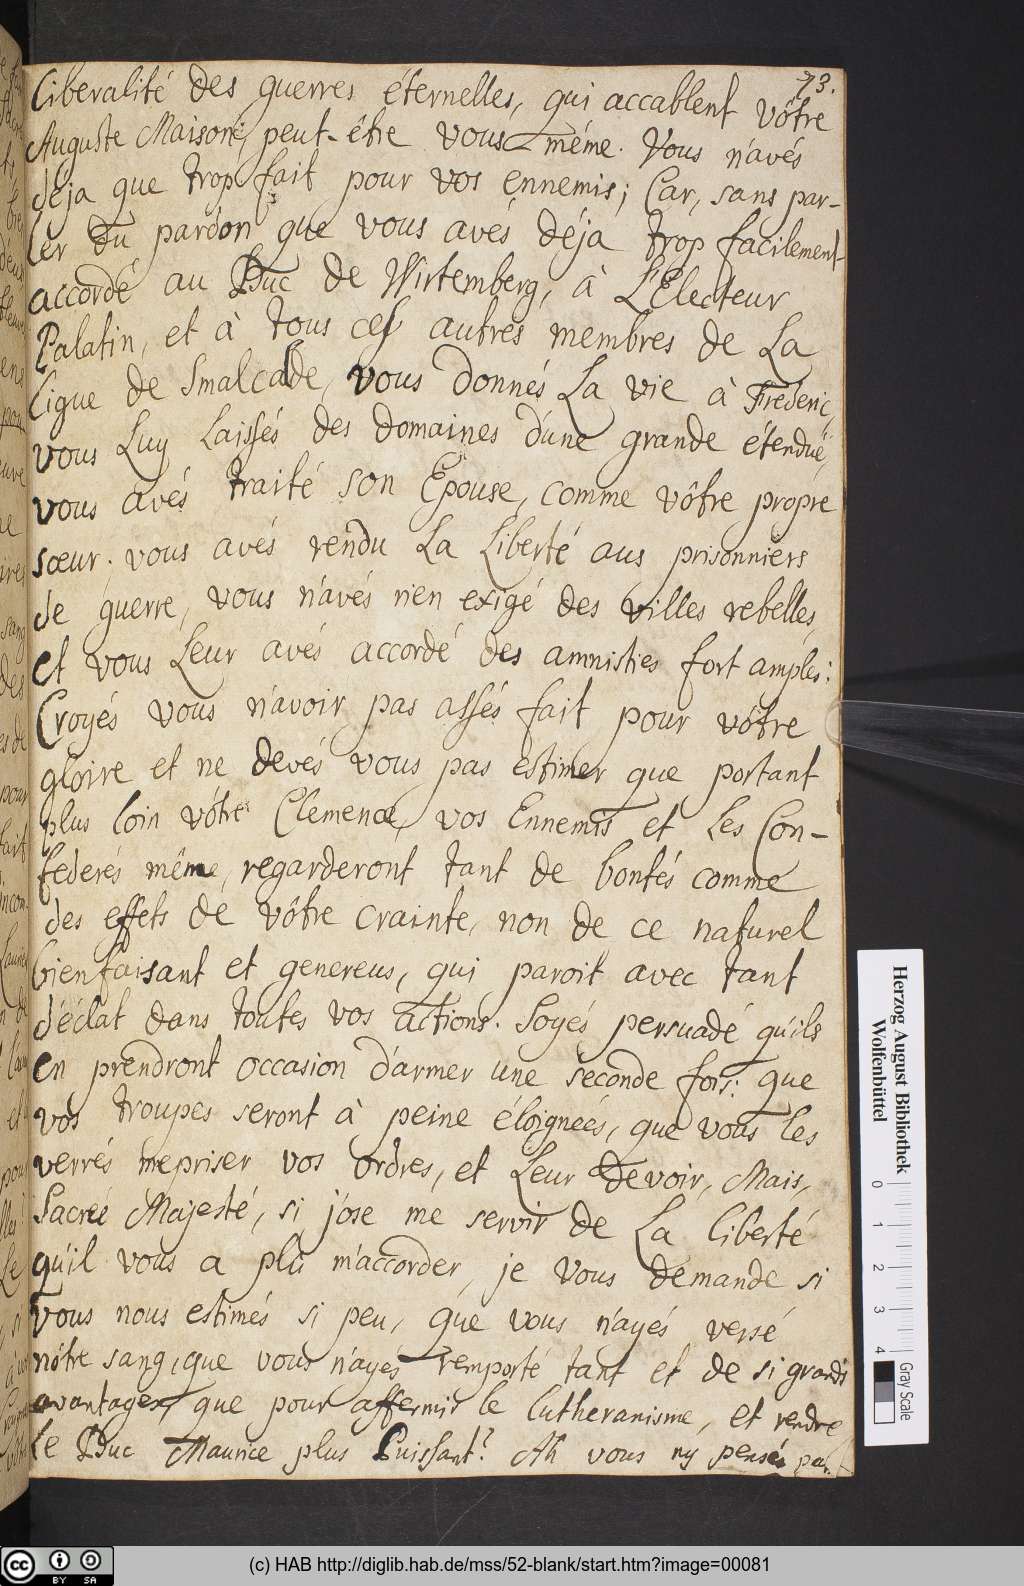 73.
Liberalité des guerres éternelles, qui accablent vôtre
Auguste Maison, peut-être vous-même. Vous n'avés
déja que trop fait pour vos ennemis; Car, sans par-
ler du pardon que vous avés déja trop facilement
accordé au Duc de Wirtemberg, à L'Electeur
Palatin, et à tous ces autres membres de La
Ligue de Smalcalde, vous donnés La vie à Fréderic,
vous Luy Laissés des domaines d'une grande étenduë,
vous avés traité son Epouse, comme vôtre propre
sœur. vous avés rendu La Liberté aus prisonniers
de guerre, vous n'avés rien exigé des villes rebelles,
et vous Leur avés accordé des amnisties fort amples:
Croyés vous n'avoir pas assés fait pour vôtre
gloire et ne devés vous pas estimer que portant
plus loin vôtre Clemence, vos Ennemis et Les Con-
federés même, regarderont tant de bontés comme
des effets de vôtre crainte, non de ce naturel
bienfaisant et genereus, qui paroit avec tant
d'éclat dans toutes vos actions. Soyés persuadé qu'ils
en prendront occasion d'armer une seconde fois: que
vos troupes seront à peine éloignées, que vous les
verrés mepriser vos ordres, et Leur devoir, Mais,
Sacreé Majesté, si j'ose me servir de La liberté
qu'il vous a plû m'accorder, je Vous demande si
Vous nous estimés si peu, que vous n'ayés versé
nôtre sang, que vous n'ayés remporté tant et de si grands
avantages, que pour affermir le Lutheranisme, et rendre
Le Duc Maurice plus Puissant? Ah vous n'y pensés pas.
Herzog August Bibliothek
Wolfenbüttel
0 1 2 3 4
Gray Scale
(c) HAB http://diglib.hab.de/mss/52-blank/start.htm?image=00081
cc BY SA